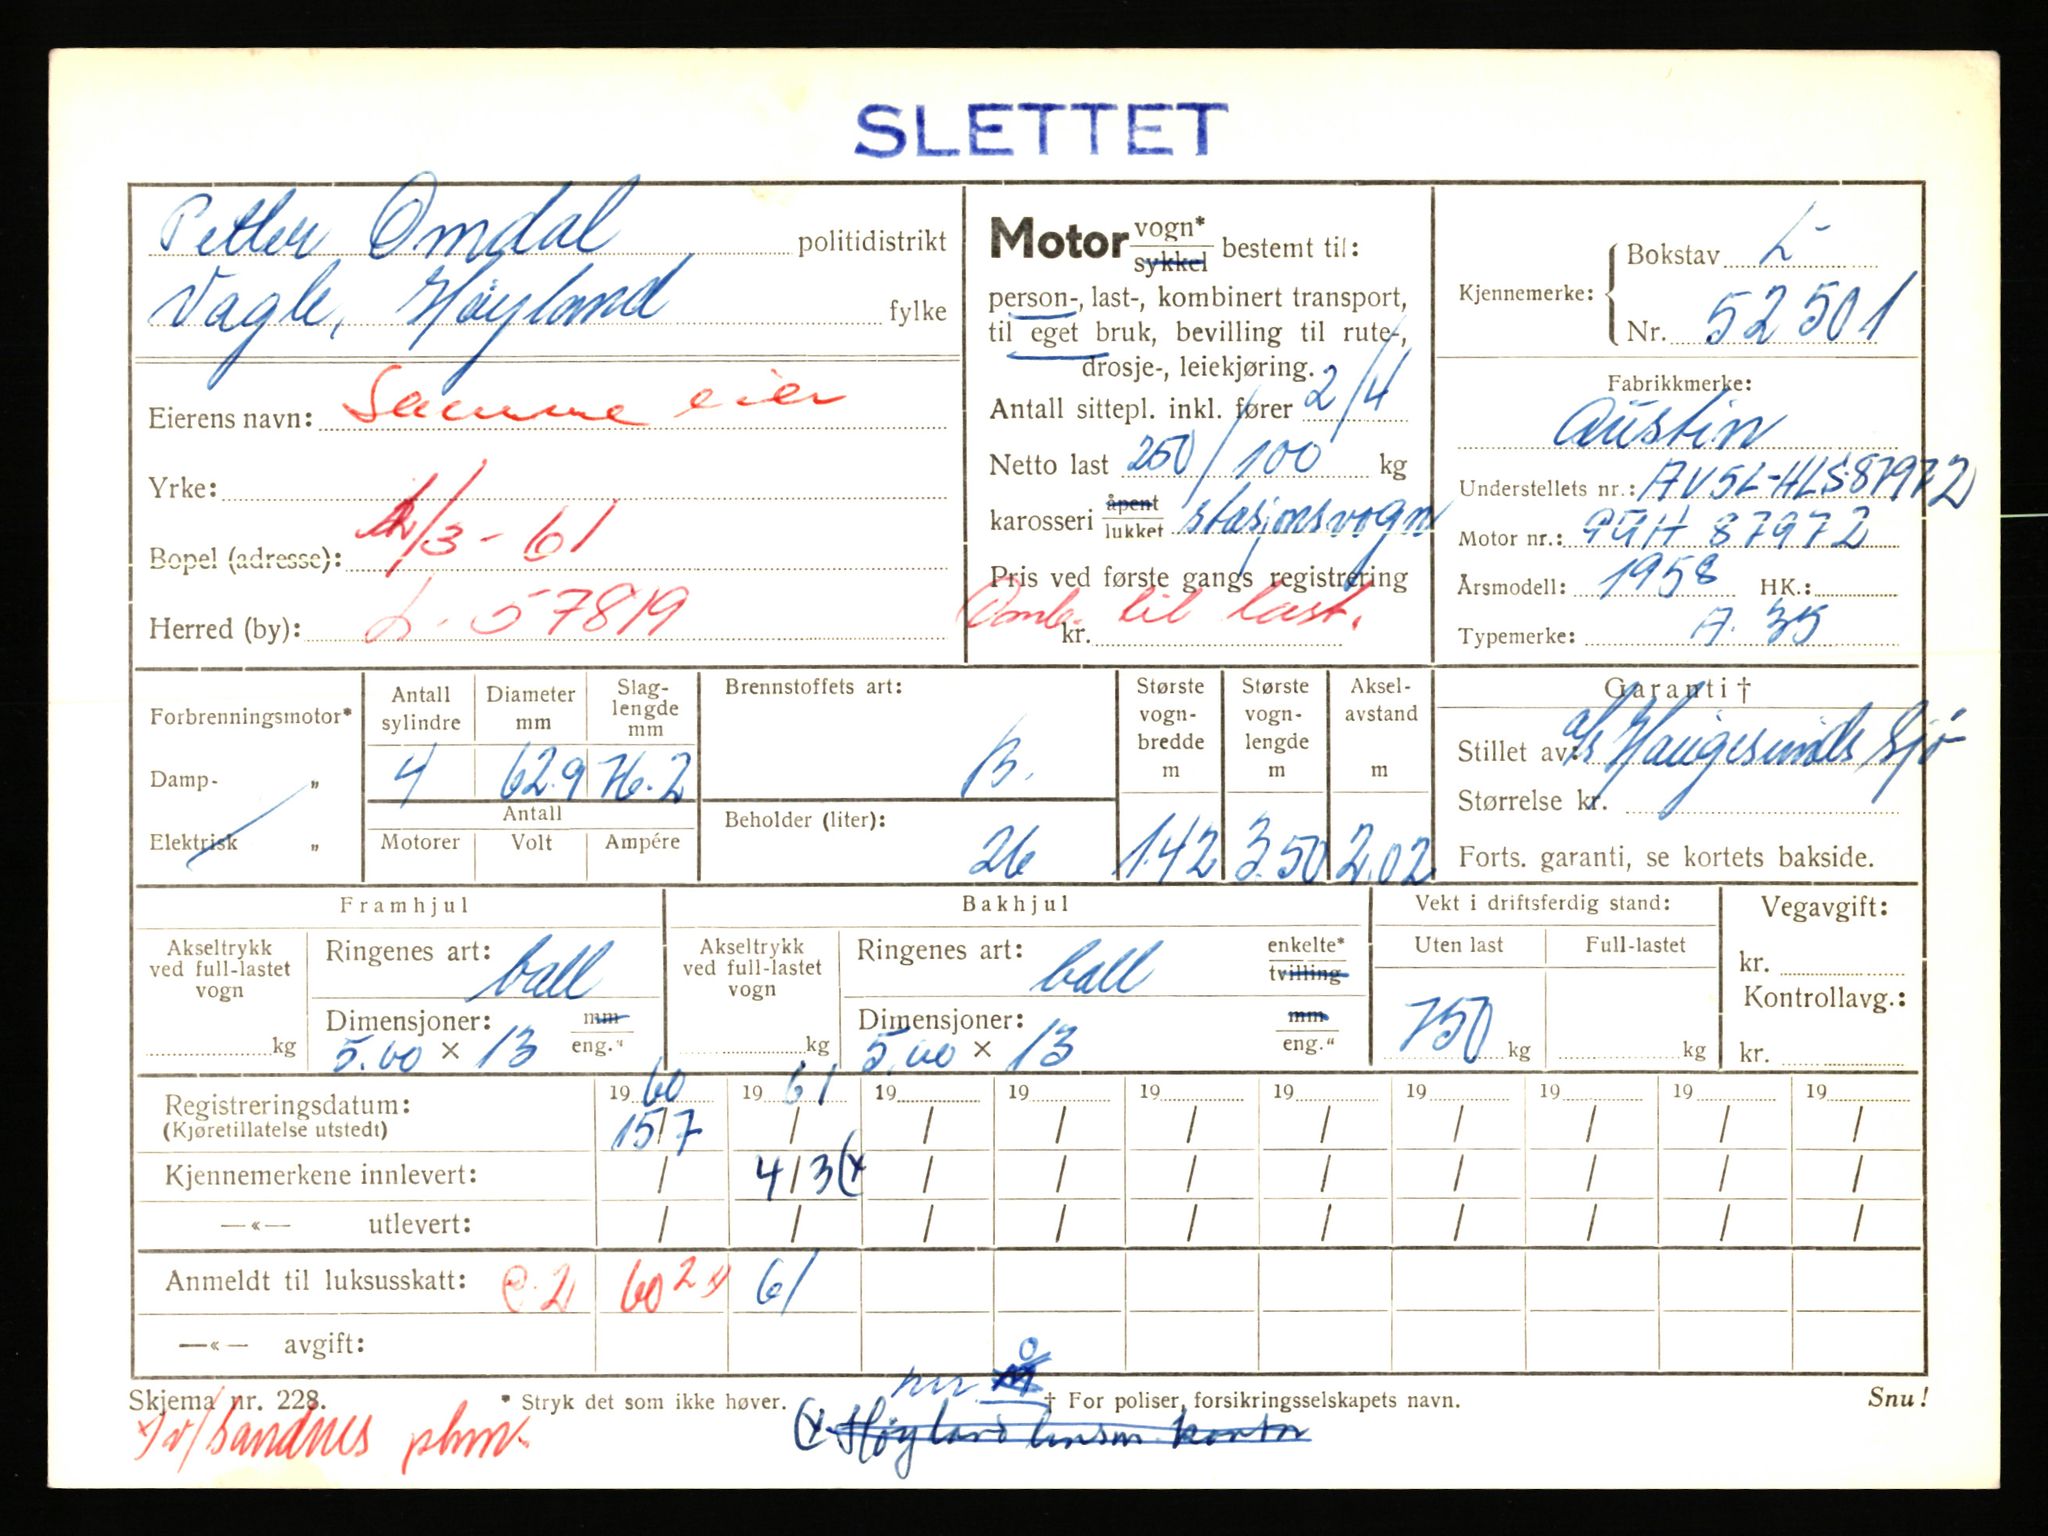 SLETTET
Petter Omdal politidistrikt
Vagle, Høyland fylke
Eierens navn: Samme eier
Yrke:
Bopel (adresse): /3-61
Herred (by): L. 57819
Motor vogn* / sykkel bestemt til:
person-, last-, kombinert transport,
til eget bruk, bevilling til rute-,
drosje-, leiekjøring.
Antall sittepl. inkl. fører 2/4
Netto last 250/100 kg
karosseri åpent / lukket stasjonsvogn
Pris ved første gangs registrering
Omb. til last.
kr.
Kjennemerke: Bokstav L-
Nr. 52501
Fabrikkmerke:
Austin
Understellets nr.: AV5L-HLS.87972
Motor nr.: 87972
Årsmodell: 1958 HK.:
Typemerke: A. 35
Forbrenningsmotor*
Damp- „
Elektrisk „
Antall sylindre 4
Diameter mm 62.9
Slag-lengde mm 76.2
Antall
Motorer Volt Ampére
Brennstoffets art: B.
Beholder (liter): 26
Største vogn-bredde m 1.42
Største vogn-lengde m 3.50
Aksel-avstand m 2.02
Garanti †
Stillet av: a/s Haugesunds Sjø
Størrelse kr.
Forts. garanti, se kortets bakside.
Framhjul
Akseltrykk ved full-lastet vogn kg
Ringenes art: ball
Dimensjoner: mm
5.00 × 13 eng."
Bakhjul
Akseltrykk ved full-lastet vogn kg
Ringenes art: ball enkelte* / tvilling
Dimensjoner: mm
5.00 × 13 eng."
Vekt i driftsferdig stand:
Uten last Full-lastet
750 kg kg
Vegavgift:
kr.
Kontrollavg.:
kr.
Registreringsdatum: 19 60 19 61 19 19 19 19 19 19 19 19
(Kjøretillatelse utstedt) 15/7 / / / / / / / / /
Kjennemerkene innlevert: / 4/3 (x / / / / / / / /
—«— utlevert: / / / / / / / / / /
Anmeldt til luksusskatt: 2 60 2 x) 61
—«— avgift:
Skjema nr. 228. * Stryk det som ikke høver. † For poliser, forsikringsselskapets navn. Snu!
x) v/Sandnes pkmr. (x Høyland lensm. kontor